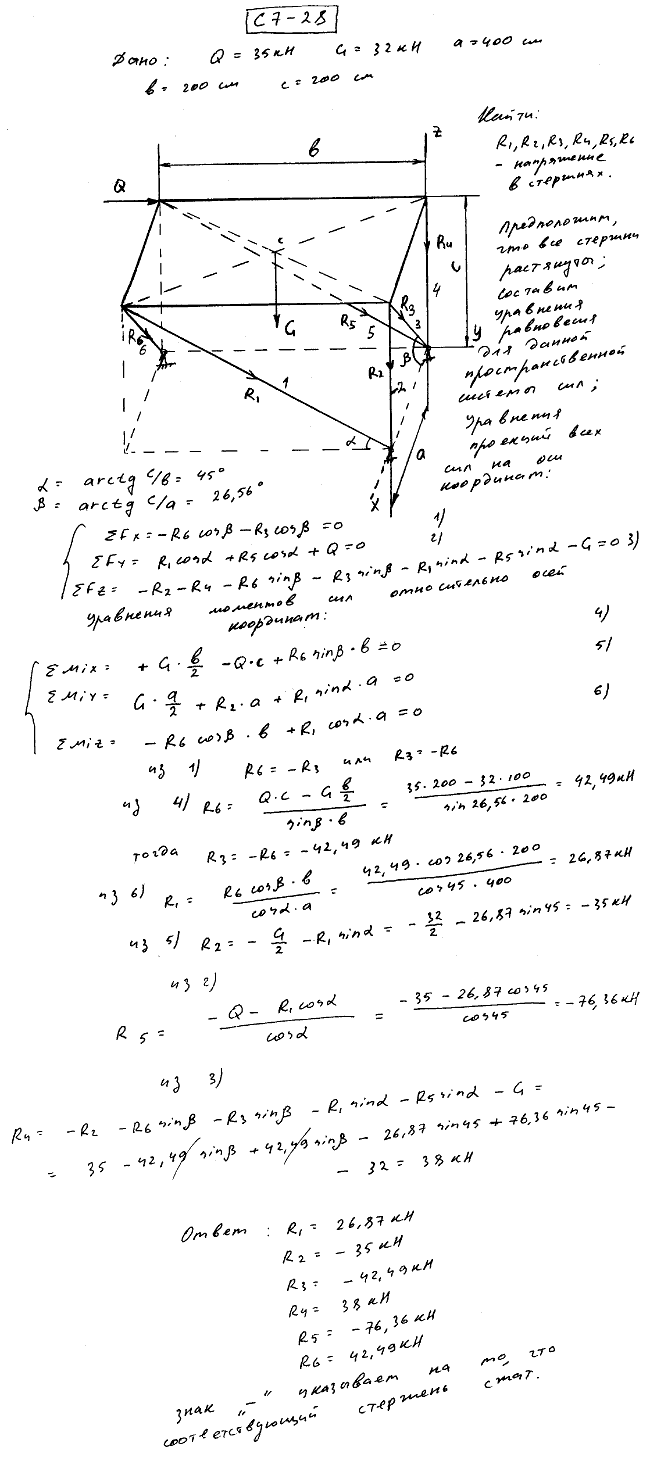 С7-28
Дано: Q = 35кН G = 32кН a = 400 см
в = 200 см c = 200 см
Найти:
R1, R2, R3, R4, R5, R6
- напряжение
в стержнях.
Предположим,
что все стержни
растянуты;
составим
уравнения
равновесия
для данной
пространственной
системы сил;
уравнения
проекций всех
сил на оси
координат:
z
в
Q
R4
c
4
c
R3
3
R5
5
y
G
R6
6
β
R2
2
1
R1
α
a
x
α = arctg c/в = 45°
β = arctg c/a = 26,56°
ΣFx = -R6 cosβ - R3 cosβ = 0 1)
ΣFy = R1 cosα + R5 cosα + Q = 0 2)
ΣFz = -R2 - R4 - R6 sinβ - R3 sinβ - R1 sinα - R5 sinα - G = 0 3)
уравнения моментов сил относительно осей
координат:
ΣMix = + G · в/2 - Q·c + R6 sinβ · в = 0 4)
ΣMiy = G · a/2 + R2 · a + R1 sinα · a = 0 5)
ΣMiz = - R6 cosβ · в + R1 cosα · a = 0 6)
из 1) R6 = -R3 или R3 = -R6
из 4) R6 = (Q·c - G в/2)/(sinβ · в) = (35·200 - 32·100)/(sin 26,56 · 200) = 42,49 кН
тогда R3 = -R6 = -42,49 кН
из 6) R1 = (R6 cosβ · в)/(cosα · a) = (42,49 · cos 26,56 · 200)/(cos 45 · 400) = 26,87 кН
из 5) R2 = - G/2 - R1 sinα = - 32/2 - 26,87 sin45 = -35 кН
из 2)
R5 = (-Q - R1 cosα)/(cosα) = (-35 - 26,87 cos45)/(cos45) = -76,36 кН
из 3)
R4 = -R2 - R6 sinβ - R3 sinβ - R1 sinα - R5 sinα - G =
= 35 - 42,49 sinβ + 42,49 sinβ - 26,87 sin45 + 76,36 sin45 -
- 32 = 38 кН
Ответ: R1 = 26,87 кН
R2 = -35 кН
R3 = -42,49 кН
R4 = 38 кН
R5 = -76,36 кН
R6 = 42,49 кН
знак „-“ указывает на то, что
соответствующий стержень сжат.